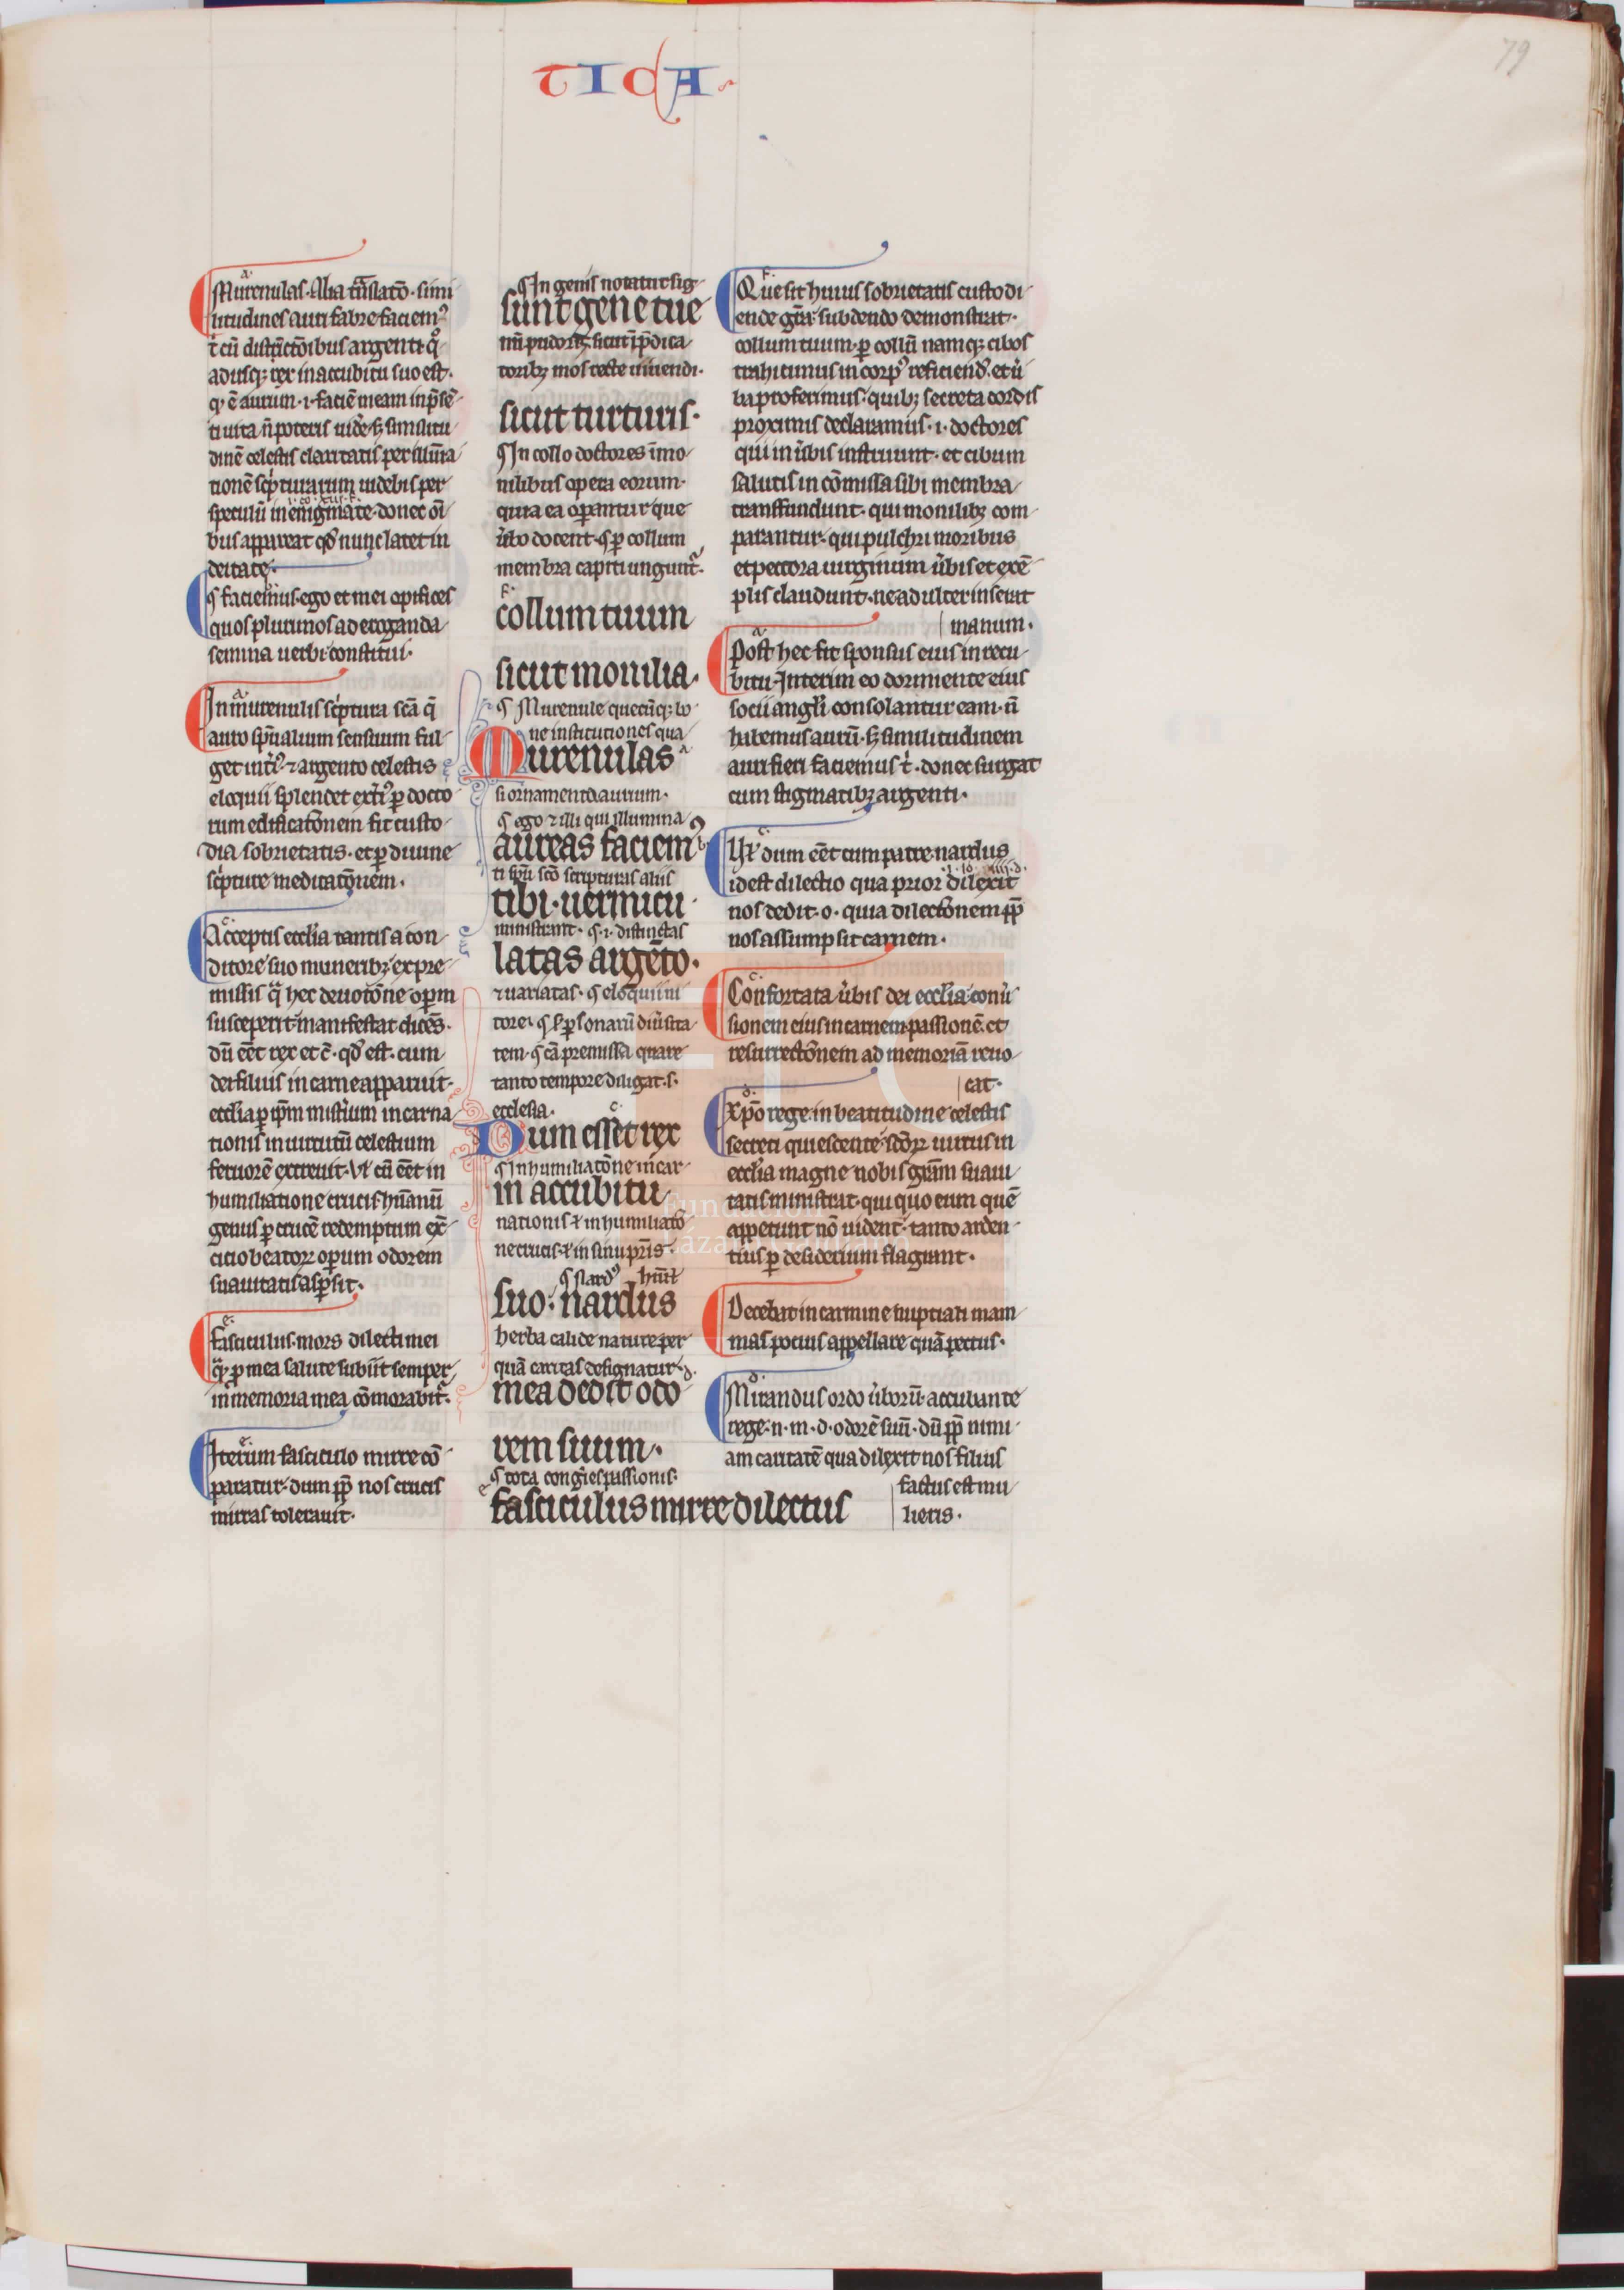 TICA
79
Murenulas. Alia trāslatō. simi
litudines auri fabrefaciemꝰ
t̄ cū distīctōibus argenti qͦ
adusqꝫ rex in accubitu suo est.
qͥ ē aurum .i. faciē meam in p̄sē
ti uita n̄ poteris uidē. sꝫ similitu
dinē celestis claritatis per illuīa
tionē scͥpturarum uidebis per
speculū in enigmate. donec oī
bus appareat qđ nunc latet in
deitate.
¶ faciemus. ego et mei opifices
quos plurimos ad eroganda
semina uerbi constitui.
In murenulis scͥptura scā q̄
auro spūalium sensuum ful
get intͥꝰ ⁊ argento celestis
eloquii splendet extͥꝰ ꝑ docto
rum edificatōnem fit custo
dia sobrietatis. et ꝑ diuine
scͥpture meditatōnem.
Acceptis ecclīa tantis a con
ditore suo muneribꝫ ex pre
missis qͣ hec deuotōne opͥm
susceperit manifestat dicēs.
dū eēt rex et c̄. qđ est. cum
dei filius in carne apparuit.
ecclīa ꝑ ipm mistͥium incarna
tionis in uirtutū celestium
feruorē excreuit. Ul cū eēt in
humiliatione crucis hūanū
genus ꝑ crucē redemptum ex
citio beatoꝝ opͥum odorem
suauitatis aspͥsit.
Fasciculus. mors dilecti mei
qͣꝫ ꝓ mea salute subiit semper
in memoria mea cōmorabitͬ.
Iterum fasciculo mirre cō
paratur. dum ꝓp̄ nos crucis
mirras tolerauit.
¶ In genis notatur sig
sunt gene tue
nū pudoris sicut ī p̄dica
toribꝫ mos recte uiuendi.
sicut turturis.
¶ In collo doctores ī mo
nilibus opera eorum.
quia ea oꝑantur que
ūbo docent. ¶ ꝑ collum
membra capiti unguntͬ.
collum tuum
sicut monilia.
¶ Murenule quecūqꝫ bo
ne institutiones qua
Murenulas
si ornamenta aurium.
¶ ego ⁊ illi qui illumina
aureas faciemꝰ
ti spū scō scripturas aliis
tibi. uermicu
ministrant. ¶ .i. distinctas
latas argēto.
⁊ uariatas. ¶ eloquii ni
tore. ¶ ł ꝑsonarū diūsita
tem. ¶ cā premissa quare
tanto tempore diligat. s.
ecclesia.
Dum esset rex
¶ In humiliatōne incar
in accubitu
nationis ł in humiliatō
ne crucis. ł in sinu pr̄is.
¶ Nardꝰ hūil
suo: nardus
herba calide nature per
quā caritas designatur.
mea dedit odo
rem suum.
¶ tota congies passionis.
fasciculus mirre dilectus
Que sit huius sobrietatis custodi
ende grā. subdendo demonstrat.
collum tuum. ꝑ collū namqꝫ cibos
trahitimus in corpꝰ reficienđ. et ū
ba proferimus. quibꝫ secreta cordis
proximis declaramus .i. doctores
qui in ūbis instruunt. et cibum
salutis in cōmissa sibi membra
transfundunt. qui monilibꝫ com
parantur. qui pulchri moribus
et pectora uirginum ūbis et exē
plis claudunt. ne adulter inserat
manum.
Post hec fit sponsus eius in recu
bitu. Interim eo dormiente eius
socii angłi consolantur eam. n̄
habemus aurū. sꝫ similitudinem
auri fieri faciemus tͥ. donec surgat
cum stigmatibꝫ argenti.
Ul dum eēt cum patre nardus
.i. io. iiii. d.
id est dilectio qua prior dilexit
nos dedit. o. quia dilectōnem ꝓp̄
nos assumpsit carnem.
Confortata ūbis dei ecclīa. conū
sionem eius in carnem passionē. et
resurrectōnem ad memoriā reuo
cat.
Xp̄o rege in beatitudine celestis
secreti quiescente. scōꝝ uirtus in
ecclīa magne nobis grām suaui
tatis ministrat. qui quo eum quē
appetunt nō uidentͬ. tanto arden
tius ꝑ desiderium flagrant.
Decebat in carmine nuptiali mam
mas potius appellare quā pectus.
Mirandus ordo ūborū. accubante
rege. n. m. d. odorē suū. dū ꝓp̄ nimi
am caritatē qua dilexit nos filius
factus est mu
lieris.
FLG
Fundación
Lázaro Galdiano